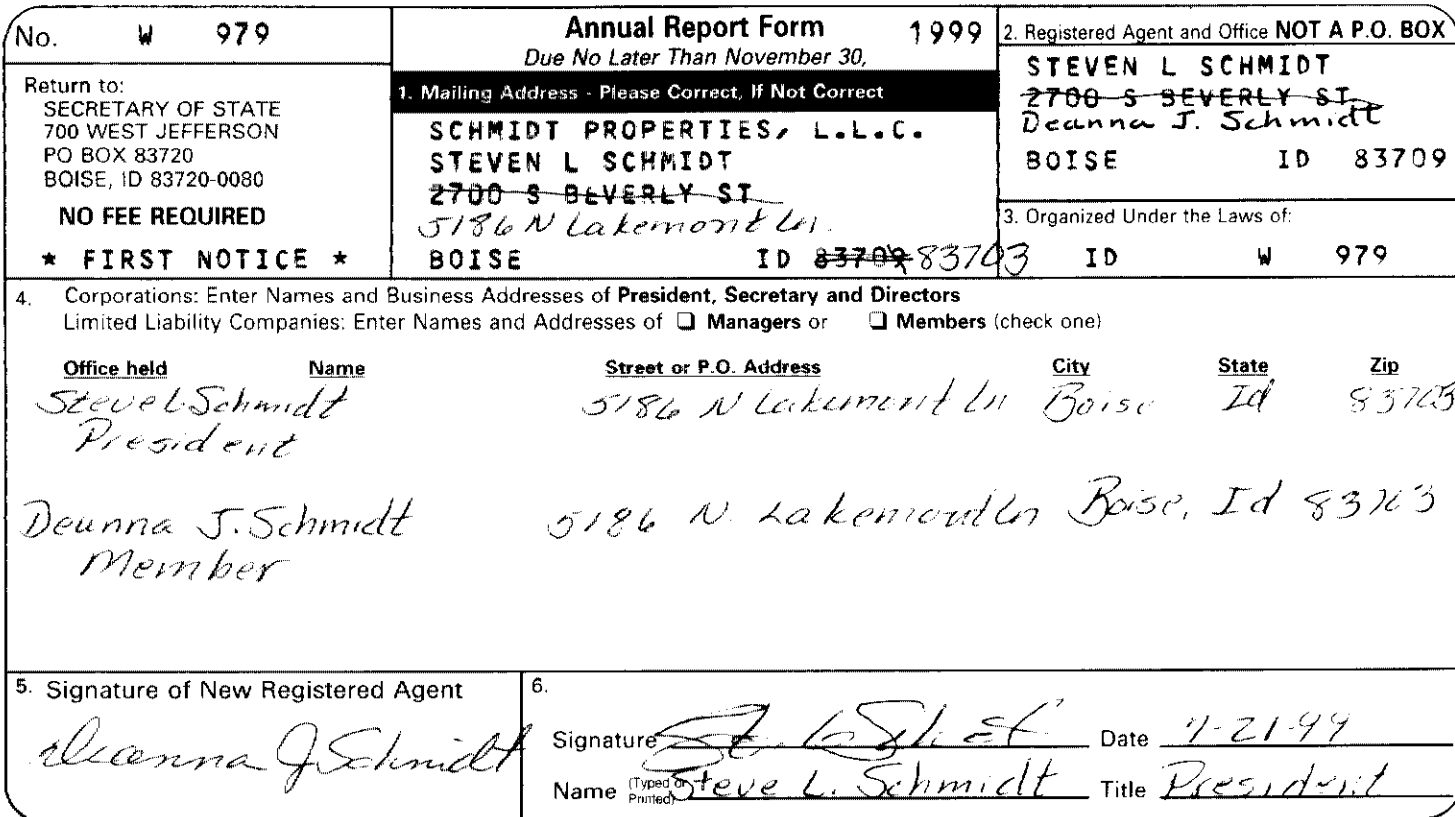 No. W 979
Return to:
SECRETARY OF STATE
700 WEST JEFFERSON
PO BOX 83720
BOISE, ID 83720-0080
NO FEE REQUIRED
* FIRST NOTICE *
Annual Report Form 1999
Due No Later Than November 30,
1. Mailing Address - Please Correct, If Not Correct
SCHMIDT PROPERTIES, L.L.C.
STEVEN L SCHMIDT
2700 S BEVERLY ST
5186 N Lakemont Ln.
BOISE ID 83709 83703
2. Registered Agent and Office NOT A P.O. BOX
STEVEN L SCHMIDT
2700 S BEVERLY ST
Deanna J. Schmidt
BOISE ID 83709
3. Organized Under the Laws of:
ID W 979
4. Corporations: Enter Names and Business Addresses of President, Secretary and Directors
Limited Liability Companies: Enter Names and Addresses of ❑ Managers or ❑ Members (check one)
Office held Name Street or P.O. Address City State Zip
Steve L Schmidt 5186 N Lakemont Ln Boise Id 83703
President
Deanna J. Schmidt 5186 N. Lakemont Ln Boise, Id 83703
Member
5. Signature of New Registered Agent
Deanna J Schmidt
6.
Signature Date
Name (Typed or Printed) Steve L. Schmidt Title President